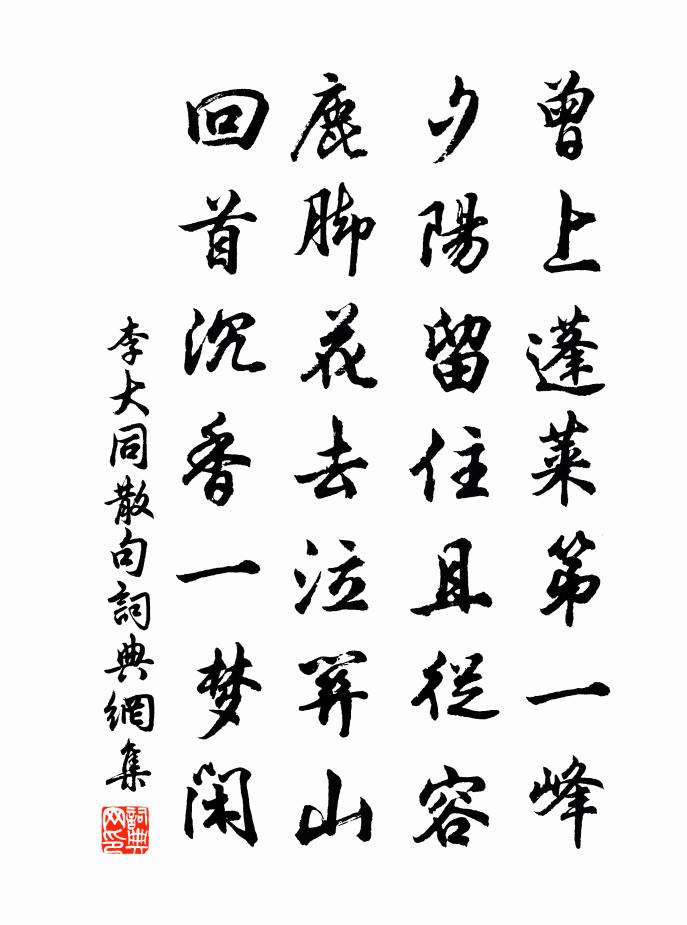 曾上蓬萊第一峰
夕陽留住且從容
鹿脚花去泣關山
回首沉香一梦閑
李大同散句詞典網集
詞典网印